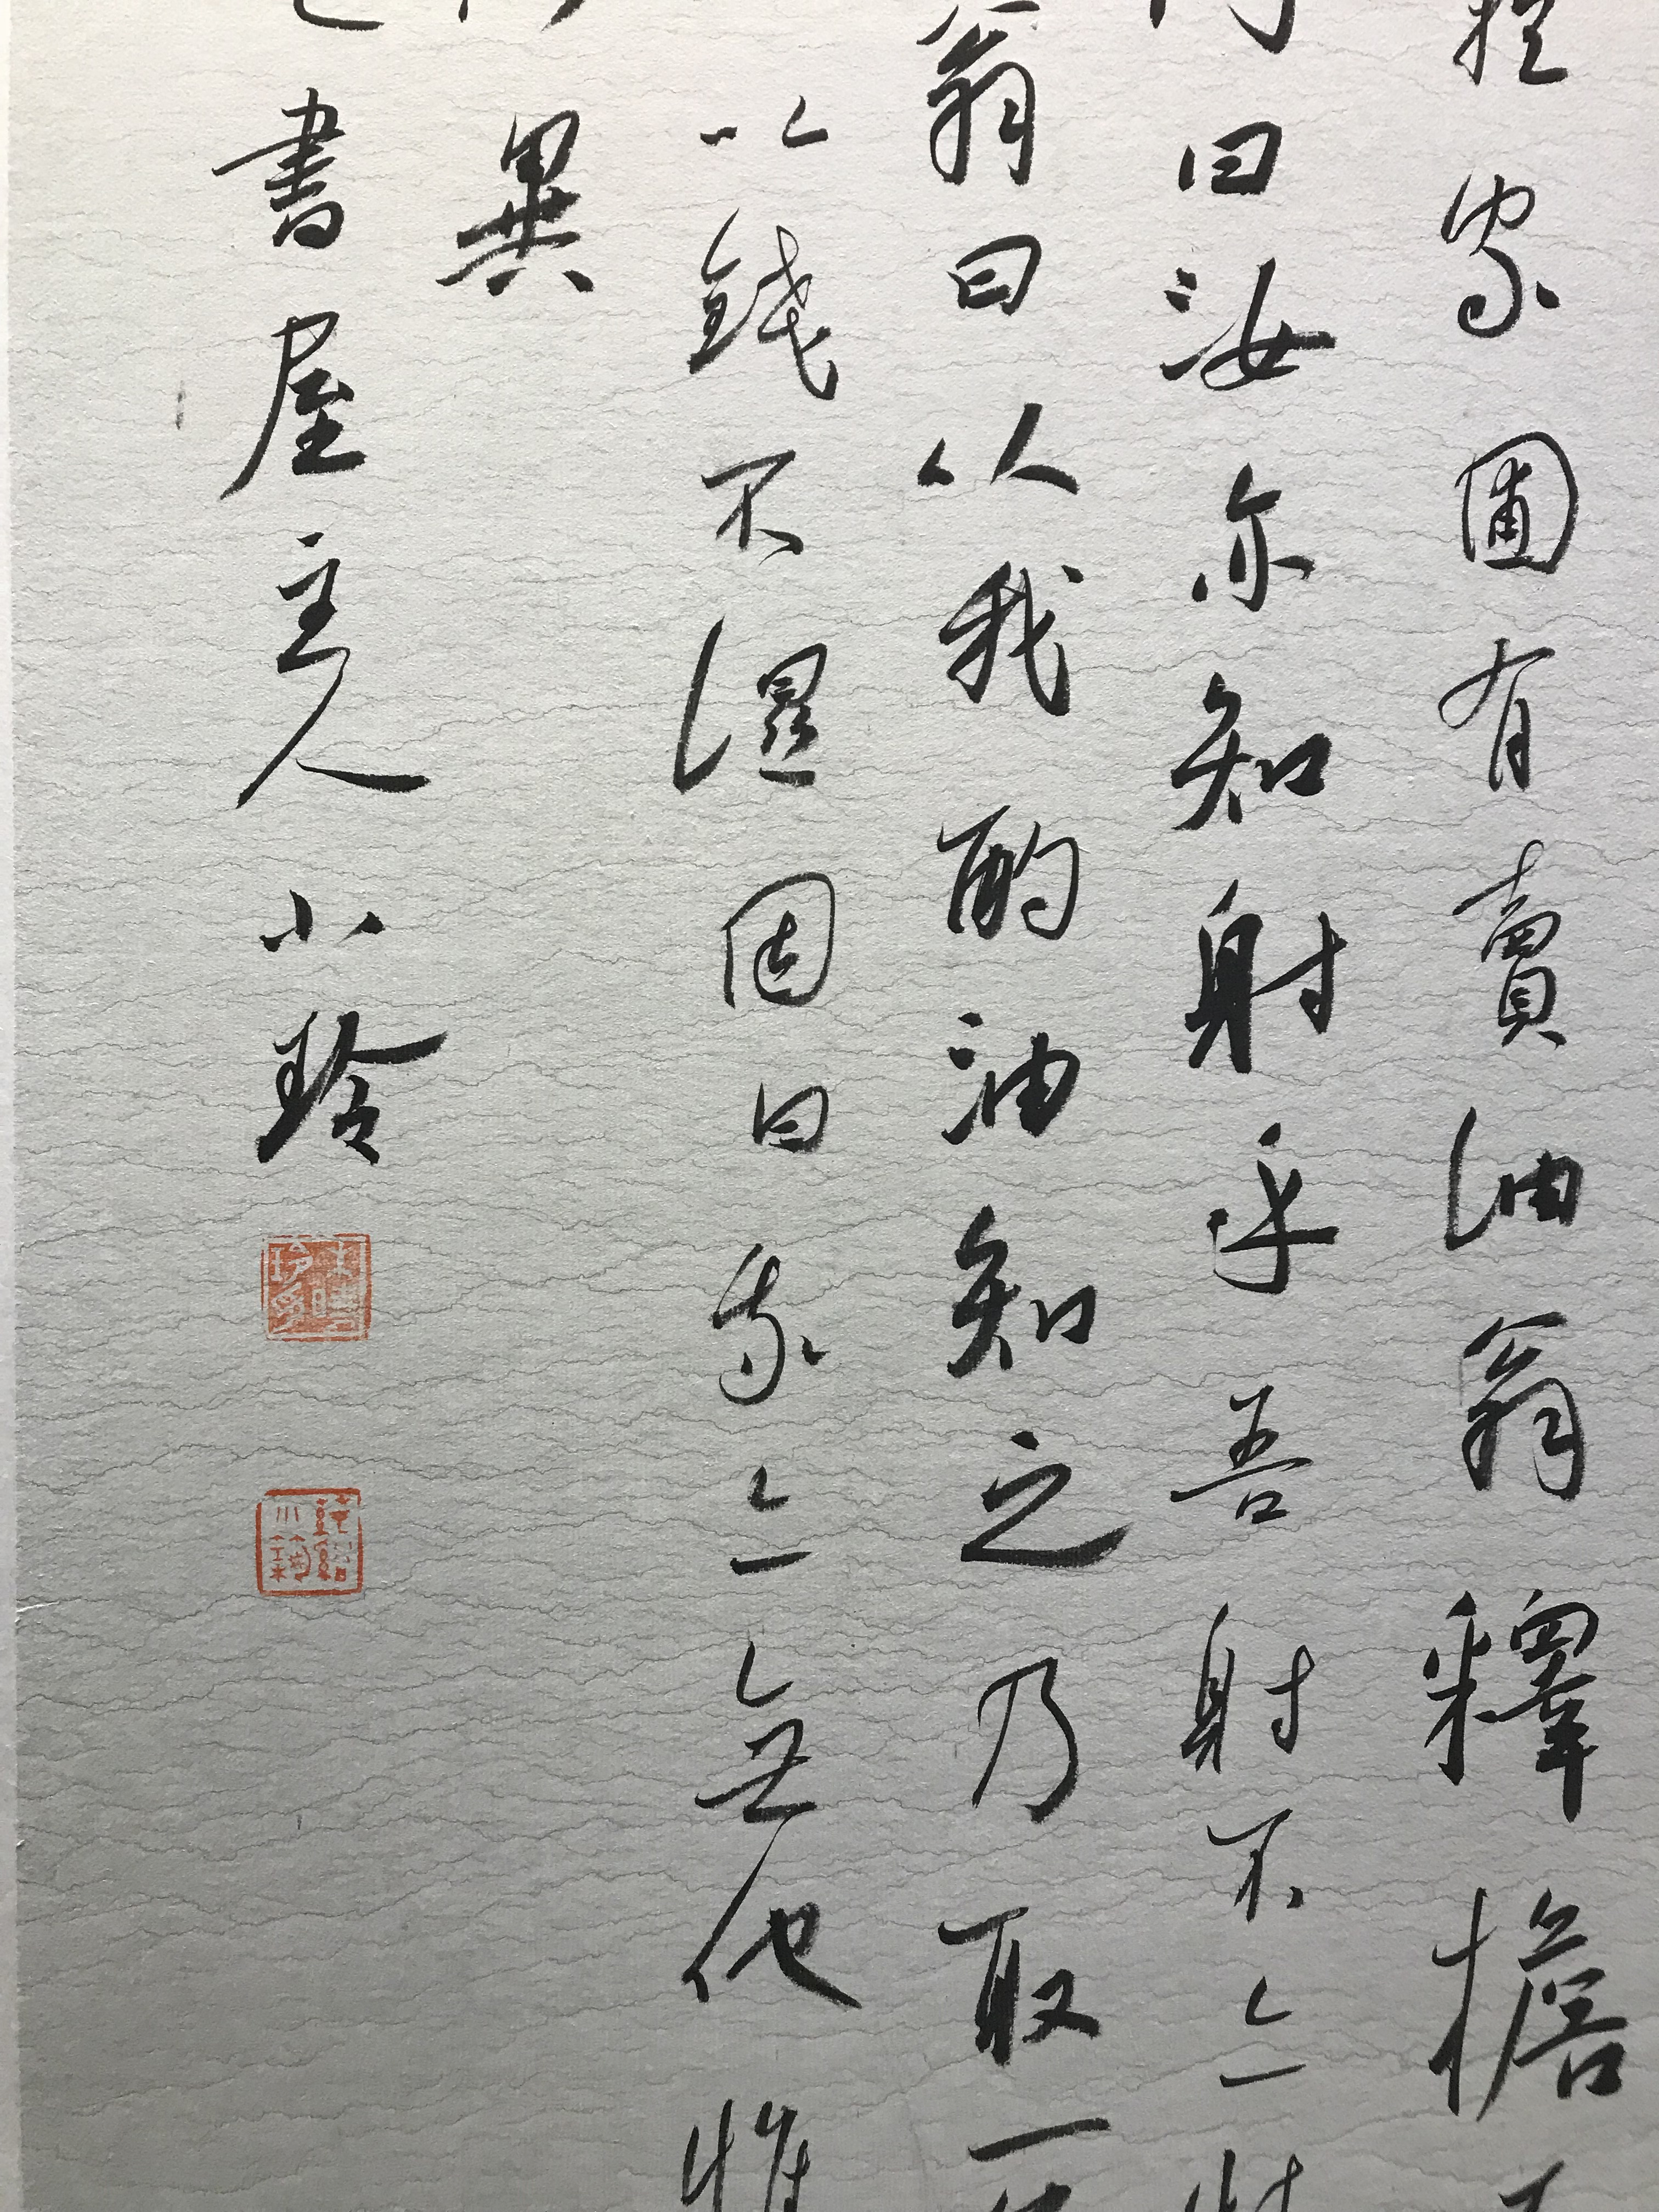 於家圃有賣油翁釋擔
曰汝亦知射乎吾射不亦
翁曰以我酌油知之乃取一
以錢不濕因曰我亦無他惟
異
書屋主人小玲